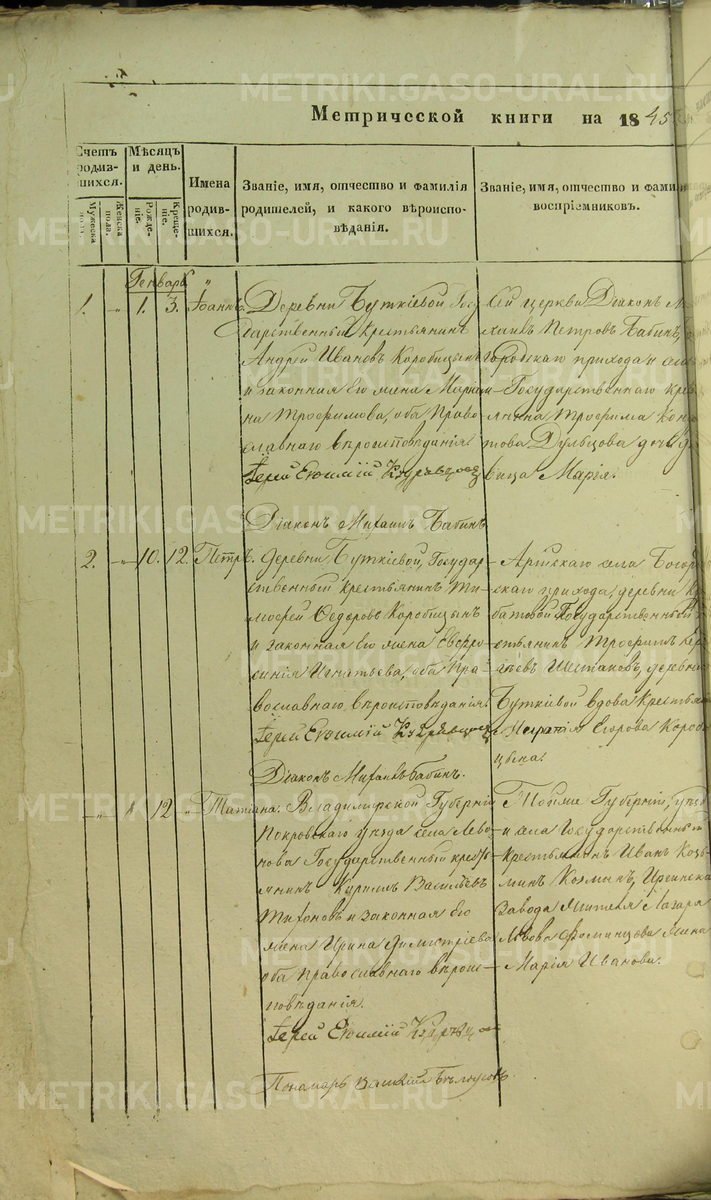 METRIKI.GASO-URAL.RU
Метрической книги на 1845
Счетъ родив-шихся.
Мужеска пола.
Женска пола.
Мѣсяцъ и день.
Рожде-ніе.
Креще-ніе.
Имена родив-шихся.
Званіе, имя, отчество и фамилія
родителей, и какого вѣроиспо-
вѣданія.
Званіе, имя, отчество и фами
воспріемниковъ.
Генварь
1. 1. 3. Іоаннъ.
Деревни Буткіевой Госу
дарственный крестьянинъ
Андрей Ивановъ Коробицынъ
и законная его жена Мар
на Трофимова, оба Право
славнаго вѣроисповѣданія
Іерей Евѳимій
Діаконъ Михаилъ Бабинъ
сей церкви Діаконъ М
хаилъ Петровъ Бабинъ,
городскаго прихода и села
Государственнаго крес
янина Трофима Кон
това Дульцова дочь д
вица Марія.
2. 10. 12. Петръ.
Деревни Буткіевой, Государ
ственный крестьянинъ Ти
моѳей Ѳедоровъ Коробицынъ
и законная его жена Евфро
синія Игнатьева, оба Пра
вославнаго вѣроисповѣданія.
Іерей Евѳимій
Діаконъ Михаилъ Бабинъ.
Артскаго села Богор
скаго прихода, деревни
батовой Государственный
стьянинъ Трофимъ
Шестаковъ, деревни
Буткіевой вдова крестьян
Егорова Короб
цына.
12 Татіана.
Владимірской Губерніи
Покровскаго уѣзда села Лево
нова Государственный крестъ
янинъ Кирилъ Васильевъ
Тихоновъ и законная его
жена Ирина Димитріева
оба Православнаго вѣроис
повѣданія.
Іерей Евѳимій
Пономарь
Тойже Губерніи, уѣзд
и села Государственный
крестьянинъ Иванъ Козь
минъ Козминъ, Иргинска
завода жителя Лазаря
Львова жена
Марія Иванова.